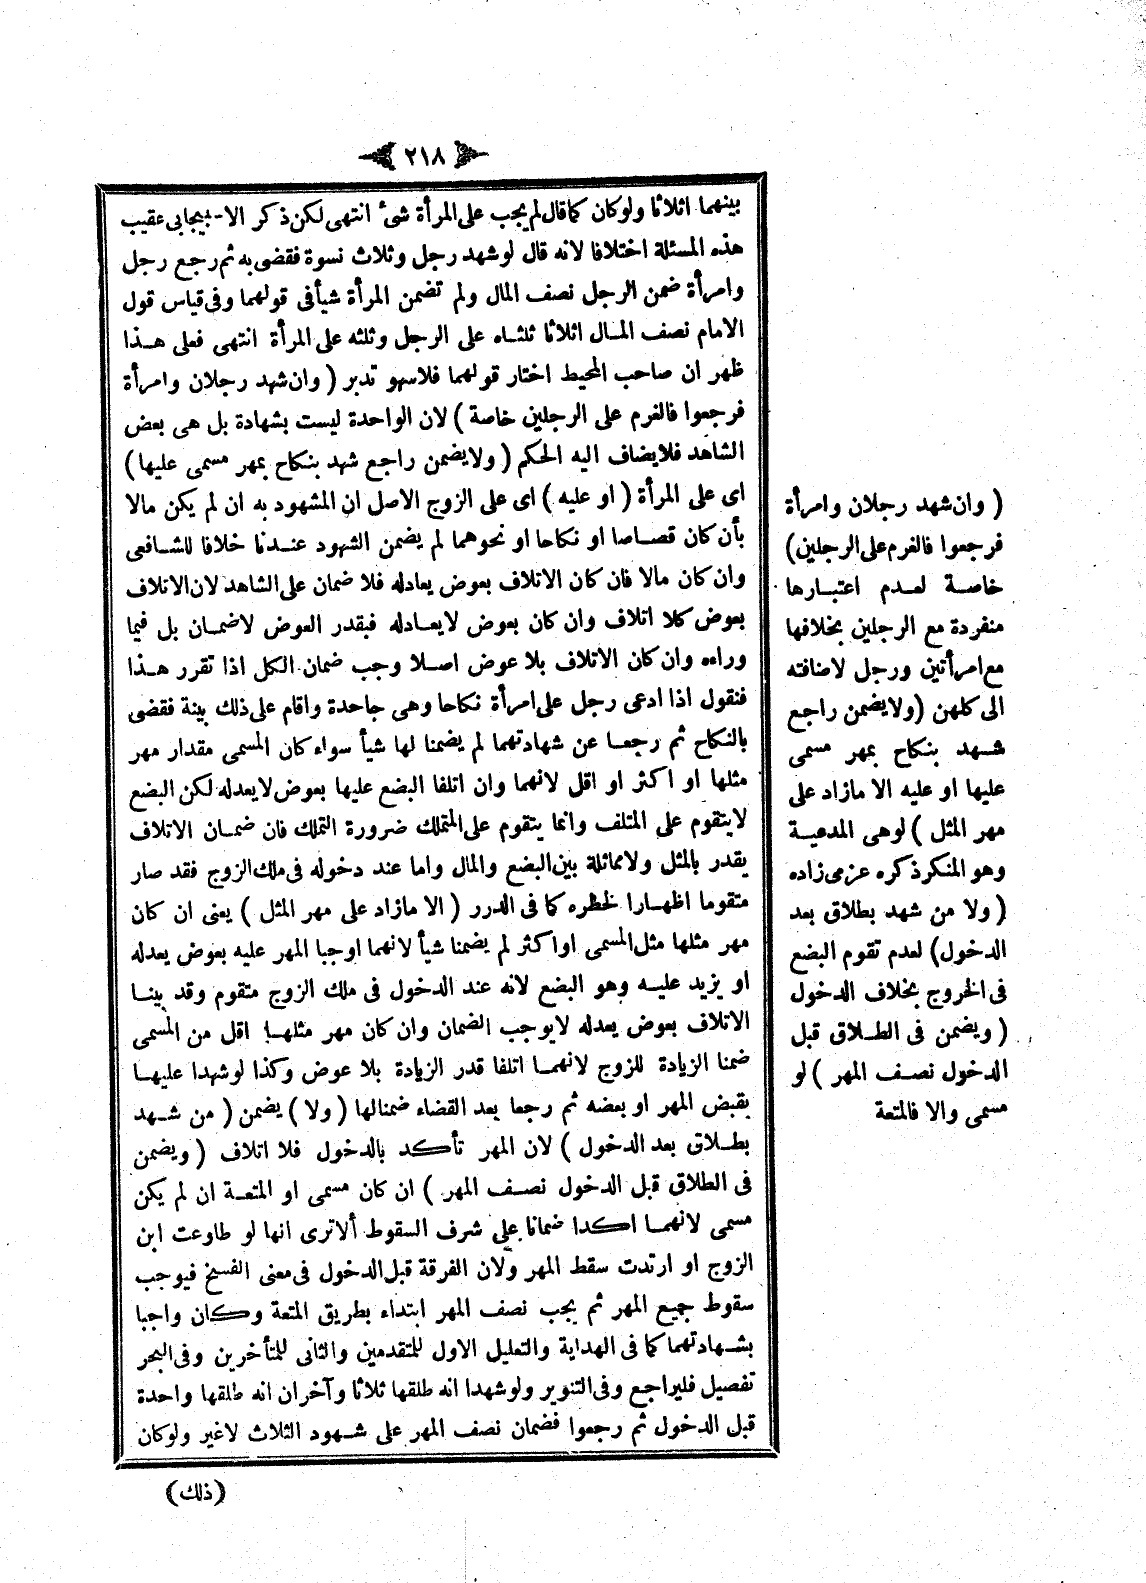 ٢١٨
بينهما اثلاثا ولوكان كماقال لم يجب على المرأة شئ انتهى لكن ذكر الاسبيجابى عقيب
هذه المسئلة اختلافا لانه قال لوشهد رجل وثلاث نسوة فقضى به ثم رجع رجل
وامرأة ضمن الرجل نصف المال ولم تضمن المرأة شيأفى قولهما وفى قياس قول
الامام نصف المال اثلاثا ثلثاه على الرجل وثلثه على المرأة انتهى فعلى هذا
ظهر ان صاحب المحيط اختار قولهما فلاسهو تدبر ( وان شهد رجلان وامرأة
فرجعوا فالغرم على الرجلين خاصة ) لان الواحدة ليست بشهادة بل هى بعض
الشاهد فلايضاف اليه الحكم ( ولايضمن راجع شهد بنكاح بمهر مسمى عليها )
اى على المرأة ( او عليه ) اى على الزوج الاصل ان المشهود به ان لم يكن مالا
بأن كان قصاصا او نكاحا او نحوهما لم يضمن الشهود عندنا خلافا للشافعى
وان كان مالا فان كان الاتلاف بعوض يعادله فلا ضمان على الشاهد لان الاتلاف
بعوض كلا اتلاف وان كان بعوض لايعادله فبقدر العوض لاضمان بل فيما
وراءه وان كان الاتلاف بلا عوض اصلا وجب ضمان الكل اذا تقرر هذا
فنقول اذا ادعى رجل على امرأة نكاحا وهى جاحدة واقام على ذلك بينة فقضى
بالنكاح ثم رجعا عن شهادتهما لم يضمنا لها شيأ سواء كان المسمى مقدار مهر
مثلها او اكثر او اقل لانهما وان اتلفا البضع عليها بعوض لايعدله لكن البضع
لايتقوم على المتلف وانما يتقوم على المتملك ضرورة التملك فان ضمان الاتلاف
يقدر بالمثل ولامماثلة بين البضع والمال واما عند دخوله فى ملك الزوج فقد صار
متقوما اظهارا لخطره كما فى الدرر ( الا مازاد على مهر المثل ) يعنى ان كان
مهر مثلها مثل المسمى اواكثر لم يضمنا شيأ لانهما اوجبا المهر عليه بعوض يعدله
او يزيد عليه وهو البضع لانه عند الدخول فى ملك الزوج متقوم وقد بينا
الاتلاف بعوض يعدله لايوجب الضمان وان كان مهر مثلها اقل من المسمى
ضمنا الزيادة للزوج لانهما اتلفا قدر الزيادة بلا عوض وكذا لوشهدا عليها
بقبض المهر او بعضه ثم رجعا بعد القضاء ضمنالها ( ولا ) يضمن ( من شهد
بطلاق بعد الدخول ) لان المهر تأكد بالدخول فلا اتلاف ( ويضمن
فى الطلاق قبل الدخول نصف المهر ) ان كان مسمى او المتعة ان لم يكن
مسمى لانهما اكدا ضمانا على شرف السقوط ألاترى انها لو طاوعت ابن
الزوج او ارتدت سقط المهر ولان الفرقة قبل الدخول فى معنى الفسخ فيوجب
سقوط جميع المهر ثم يجب نصف المهر ابتداء بطريق المتعة وكان واجبا
بشهادتهما كما فى الهداية والتعليل الاول للمتقدمين والثانى للمتأخرين وفى البحر
تفصيل فليراجع وفى التنوير ولوشهدا انه طلقها ثلاثا وآخران انه طلقها واحدة
قبل الدخول ثم رجعوا فضمان نصف المهر على شهود الثلاث لاغير ولوكان
( ذلك )
( وان شهد رجلان وامرأة
فرجعوا فالغرم على الرجلين )
خاصة لعدم اعتبارها
منفردة مع الرجلين بخلافها
مع امرأتين ورجل لاضافته
الى كلهن ( ولايضمن راجع
شهد بنكاح بمهر مسمى
عليها او عليه الا مازاد على
مهر المثل ) لوهى المدعية
وهو المنكر ذكره عزمى زاده
( ولا من شهد بطلاق بعد
الدخول ) لعدم تقوم البضع
فى الخروج بخلاف الدخول
( ويضمن فى الطلاق قبل
الدخول نصف المهر ) لو
مسمى والا فالمتعة